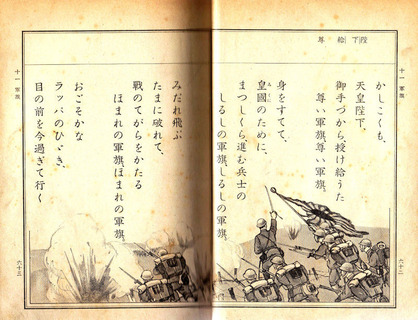 陛下 給 尊
十一 軍旗
かしこくも、
天皇陛下、
御手づから、授け給うた
尊い軍旗、尊い軍旗。
身をすてて、
皇國のために、
まつしぐら、進む兵士の
しるしの軍旗、しるしの軍旗。
六十二
みだれ飛ぶ
たまに破れて、
戰のてがらをかたる
ほまれの軍旗、ほまれの軍旗。
おごそかな
ラッパのひゞき、
目の前を今過ぎて行く
十一 軍旗
六十三